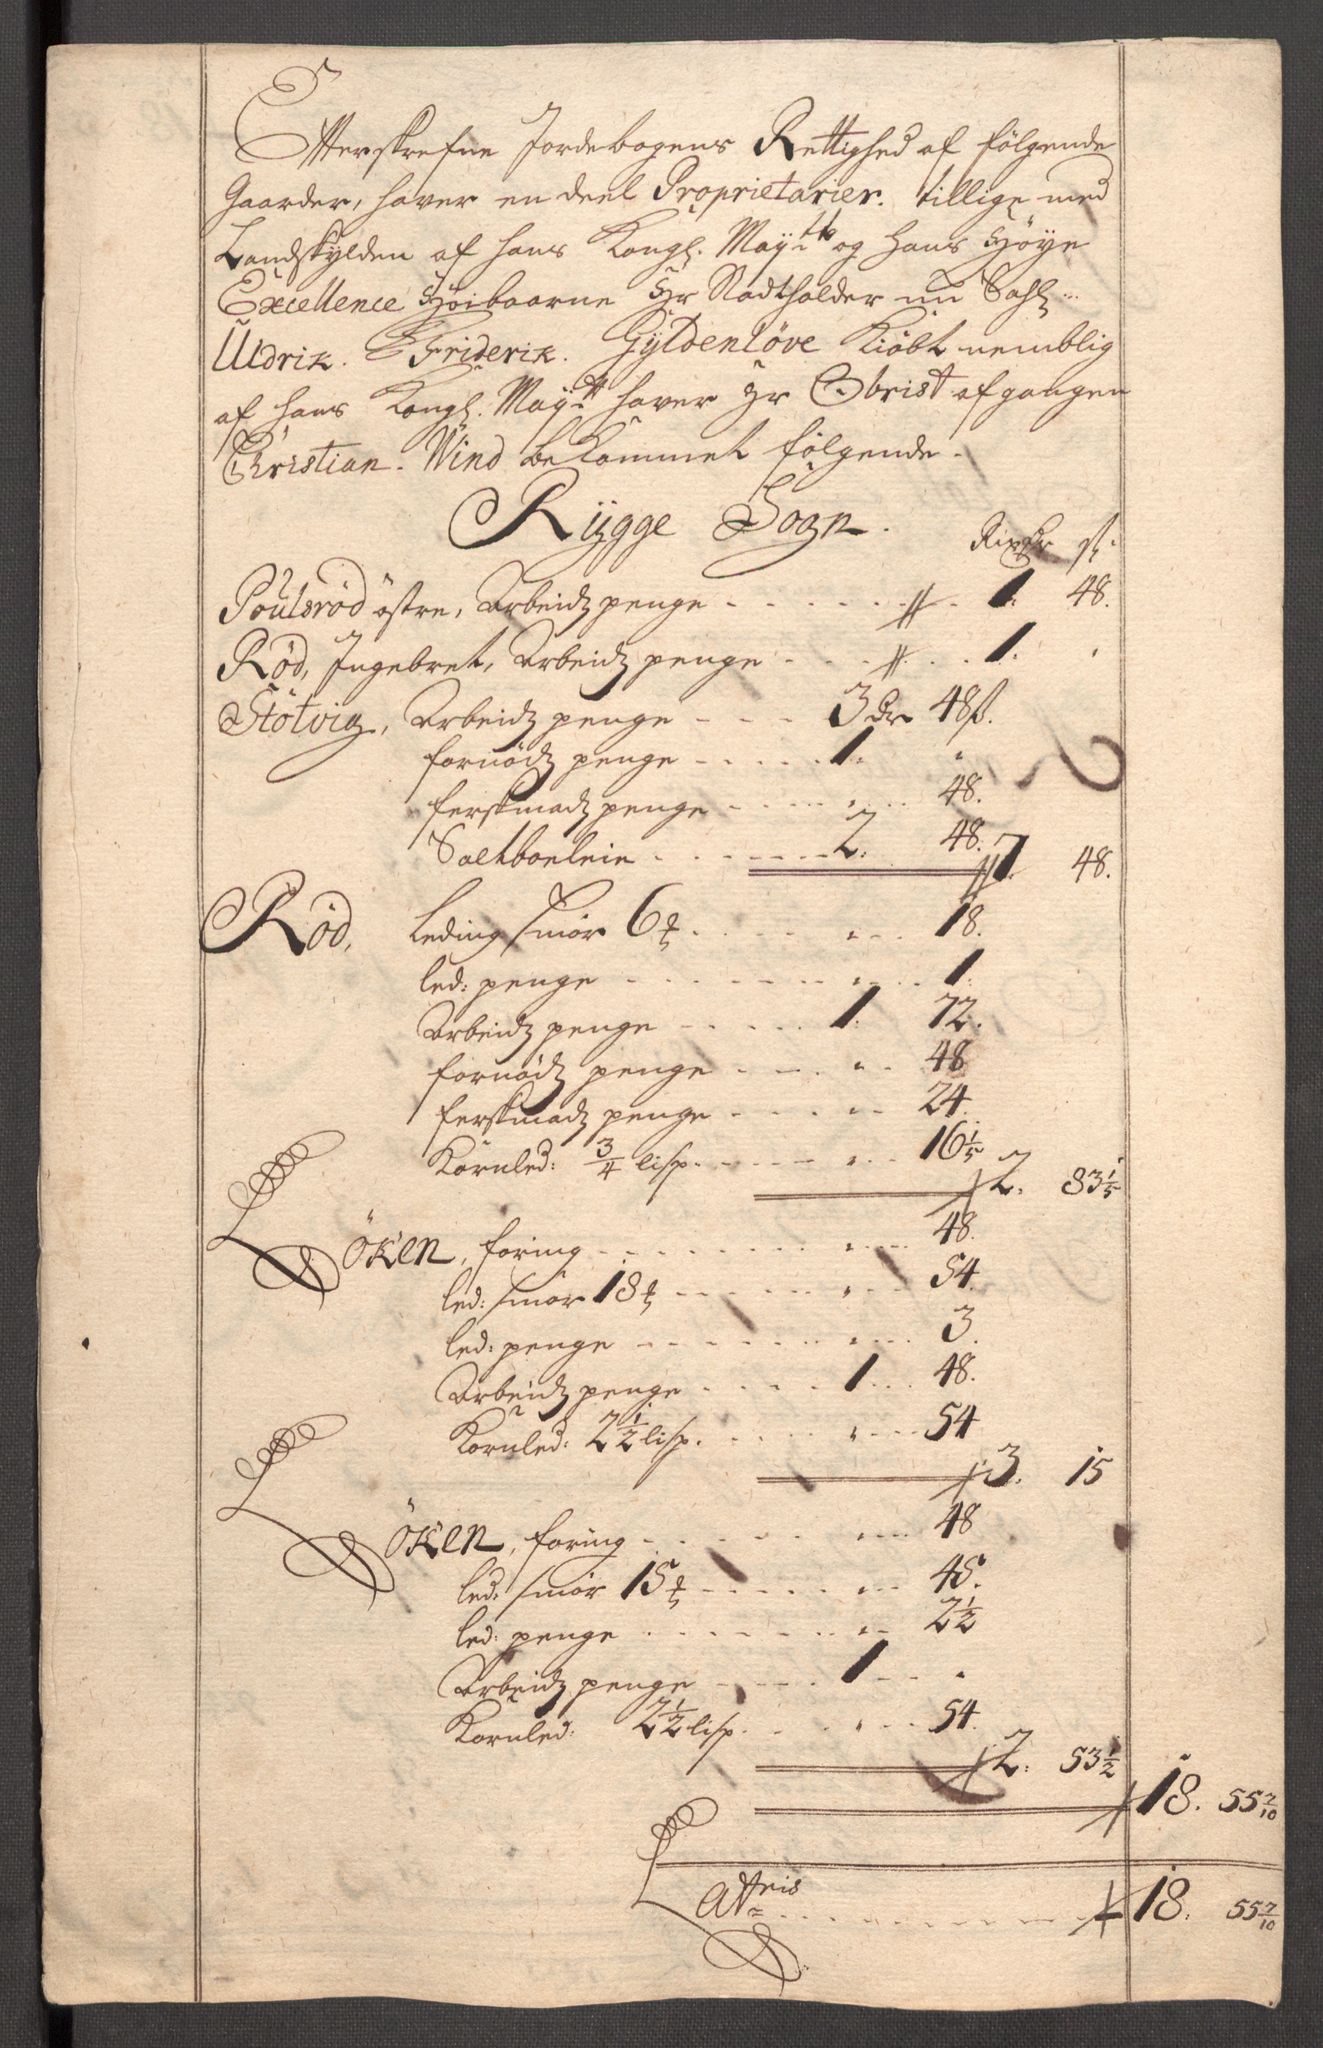 Efterskrefne Jordebogens Rettighed af følgende
Gaarder, hafver en deel Proprietarier. tillige med
Landskylden af hans Kongl. Mayᵗᵗ og hans Høye
Excellence Høibaarne Hr Stadtholder nu Sahl:
Uldrik. Friderik. Gyldenløve kiøbt nemblig
af hans Kongl. Mayᵗᵗ hafver Hr Obrist afgangen
Christian. Wind bekommet følgende.
Rÿgge Sogn.
Rixdr ß.
Poulsrød östre, Arbeidz penge - - - 1. 48.
Rød, Ingebret, Arbeidz penge - - - 1. "
Stötvig, Arbeidz penge - - - 3 dr 48 ß.
fornødz penge - - - 1. "
ferskmadz penge - - - " 48.
Saltboeleie - - - 2. 48.
7. 48.
Rød, leding smör 6 ℔ - - - " 18.
led: penge - - - " 1.
Arbeidz penge - - - 1. 72.
fornødz penge - - - " 48
ferskmadz penge - - - " 24.
Kornled: 3/4 lisp. - - - " 16 1/5
2. 83 1/5
Öken, foring - - - " 48.
led: smör 18 ℔ - - - " 54.
led: penge - - - " 3.
Arbeidz penge - - - 1. 48.
Kornled: 2 1/2 lisp. - - - " 54
3. 15
Öken, foring - - - " 48
led: smör 15 ℔ - - - " 45.
led: penge - - - " 2 1/2
Arbeidz penge - - - 1 "
Kornled: 2 1/2 lisp. - - - " 54.
2. 53 1/2
18. 55 7/10
- - - 18. 55 7/10